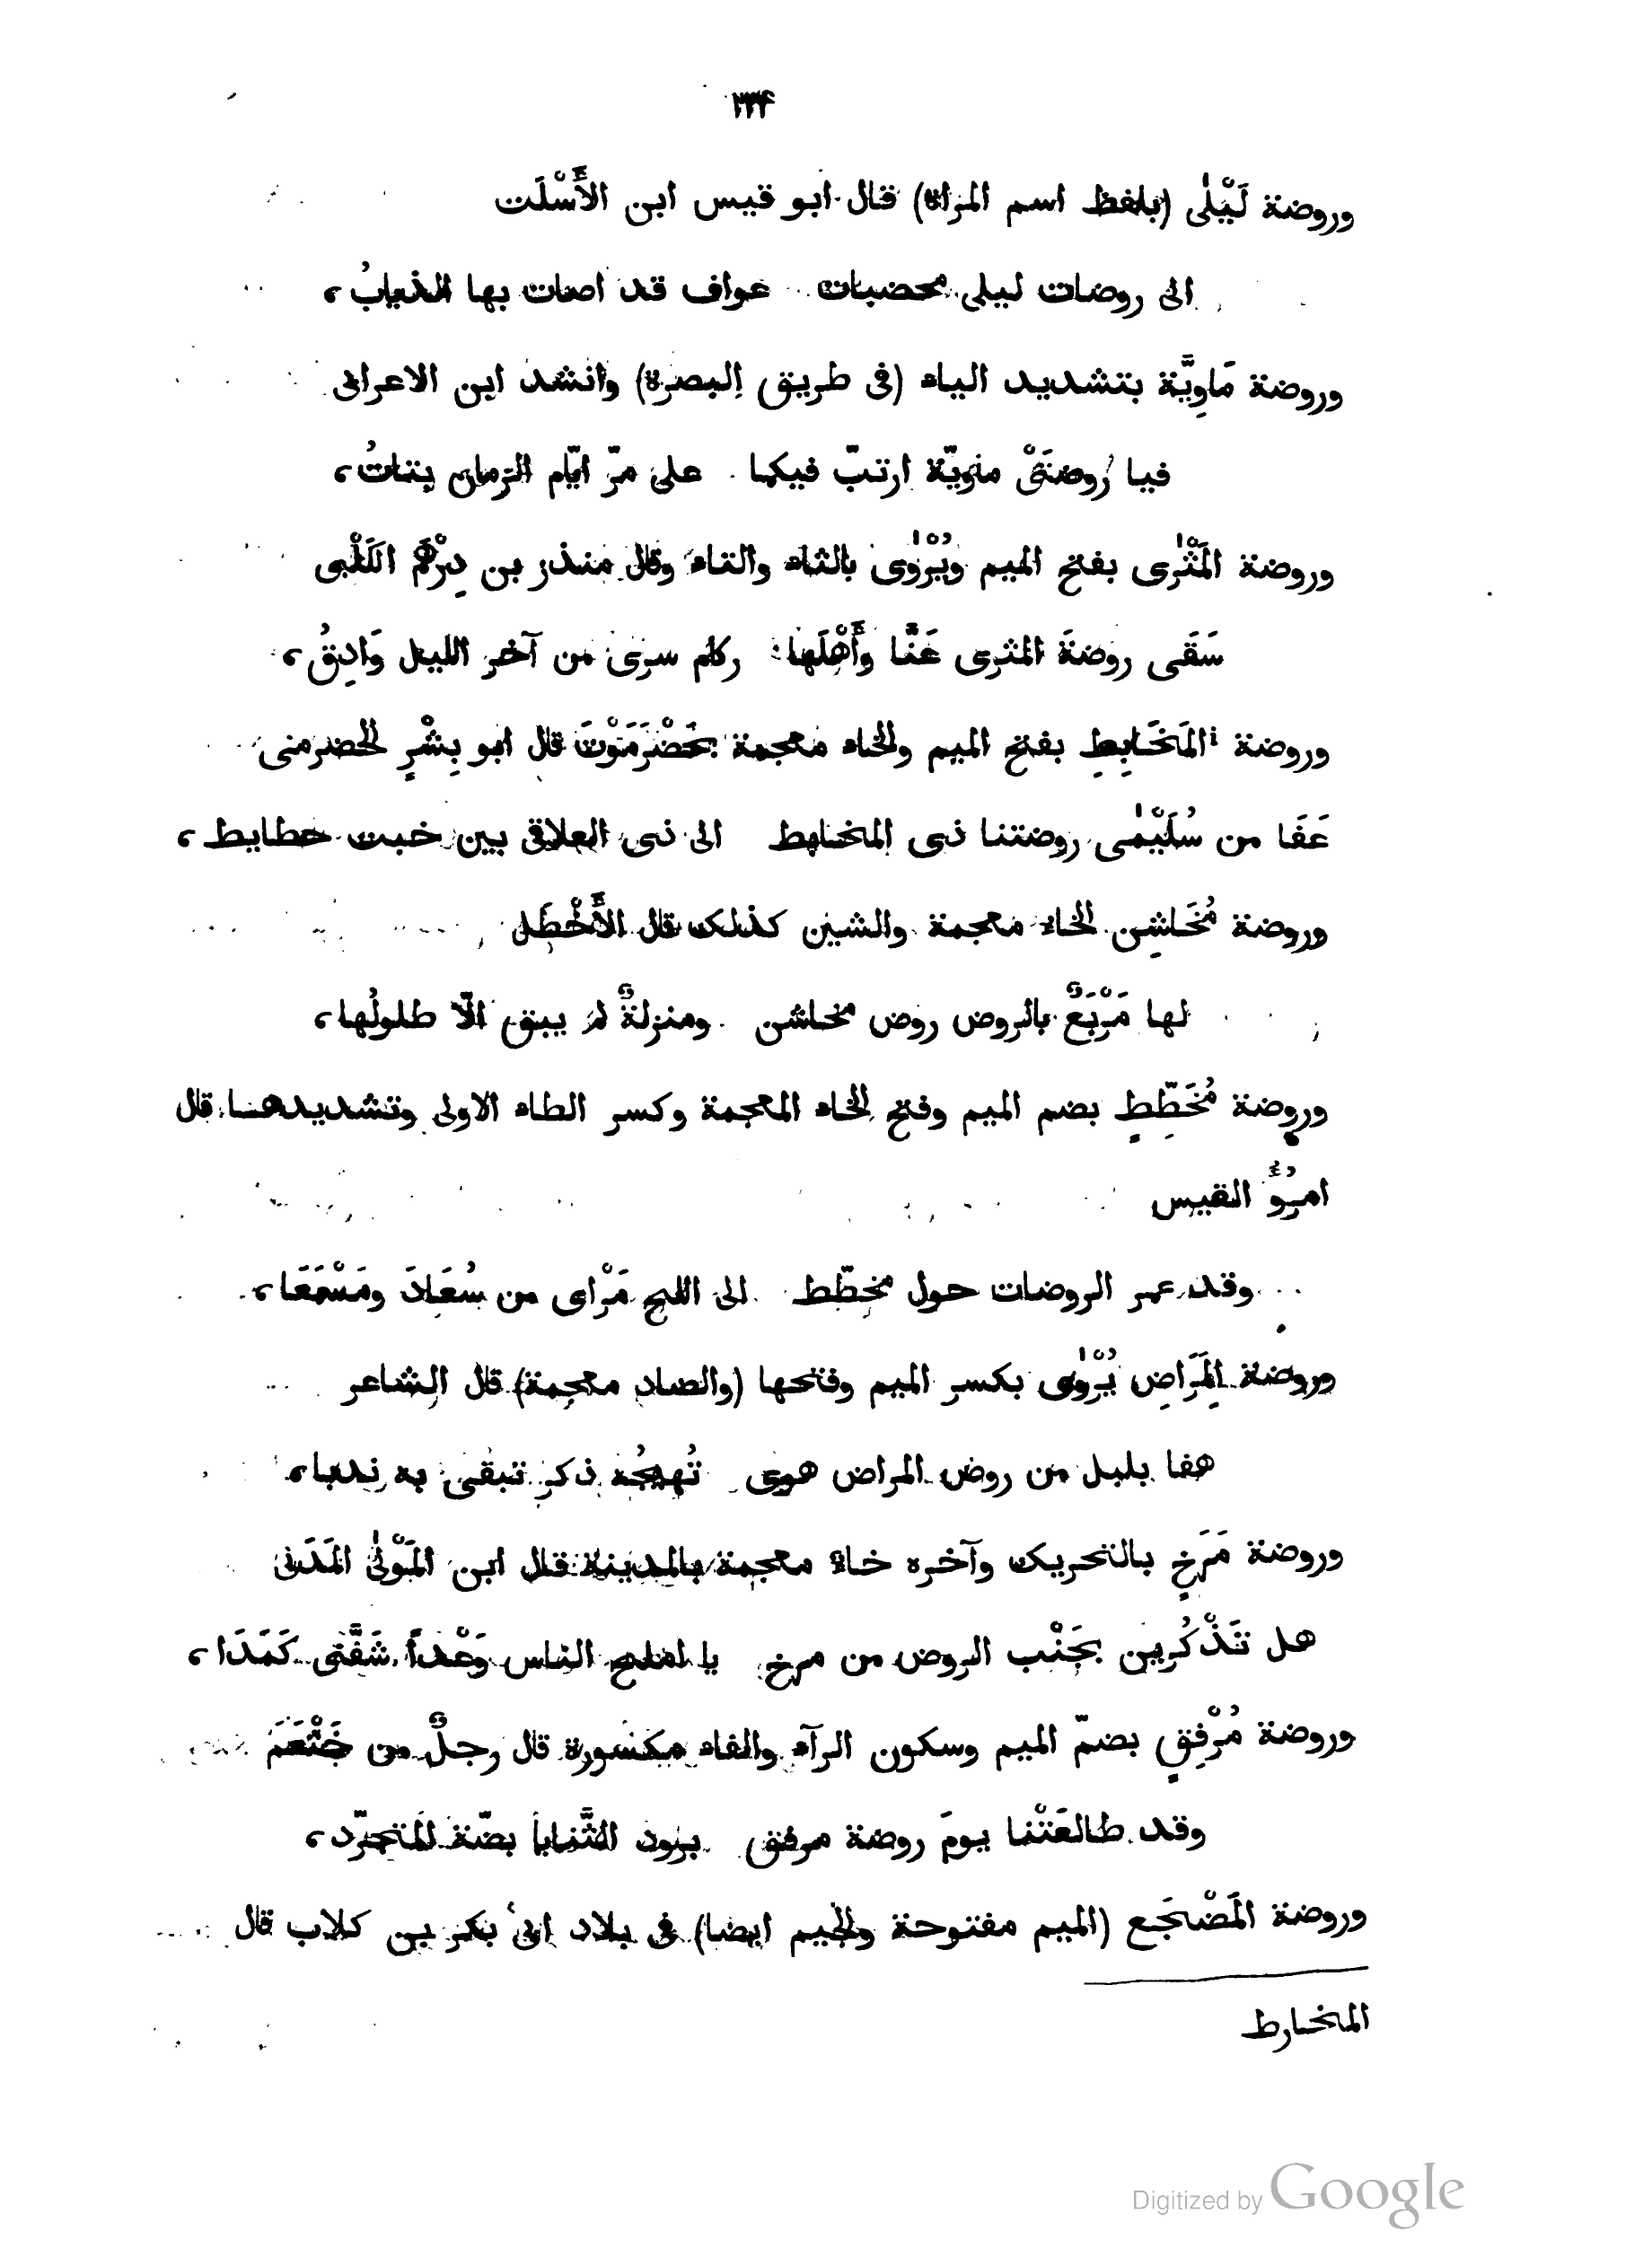 ٢٣٤
وروضة لَيْلٰى (بلفظ اسم المراة) قال ابو قيس ابن الأَسْلَت
الى روضات ليلى مخصبات عواف قد اصات بها الذبابُ،
وروضة مَاوِيَّة بتشديد الياء (فى طريق البصرة) وانشد ابن الاعرابى
فيا رَوضتَىْ ماويّة ارتبّ فيكما على مرّ ايّام الزمان نباتُ،
وروضة المَثْرٰى بفتح الميم ويُرْوٰى بالثاء والتاء وقال منذر بن دِرْهَم الكَلْبى
سَقَى روضةَ المثرى عَنَّا وأَهْلَها ركام سرى من آخر الليل وَادِقُ،
وروضة المَخَابِطِ بفتح الميم والخاء معجمة بحَضْرَمَوْتَ قال ابو بِشْرٍ الحضرمى
عَفَا من سُلَيْمٰى روضتنا ذى المخابط الى ذى العلاقى بين خبت حطايط،
وروضة مُخَاشِن الخاء معجمة والشين كذلك قال الأَخْطَل
لها مَرْبَعٌ بالروض روض مخاشن ومنزلةٌ لم يبق الّا طلولُها،
وروضة مُخَطِّطٍ بضم الميم وفتح الخاء المعجمة وكسر الطاء الاولى وتشديدها قال
امرُؤُ القيس
وقد عمر الروضات حول مخطّط الى اللج مَرْاى من سُعَادَ ومَسْمَعَا،
وروضة المَِرَاضِ يُرْوٰى بكسر الميم وفتحها (والضاد معجمة) قال الشاعر
هفا بلبل من روض المراض هوى تُهيجُه ذكر تبقى به ندبا،
وروضة مَرَخٍ بالتحريك وآخره خاءٌ معجمة بالمدينة قال ابن المَوْلٰى المَدَنى
هل تَذْكُرين بجَنْب الروض من مرخ يا املح الناس وَعْداً شَفَّنى كَمَدَا،
وروضة مُرْفِقٍ بضمّ الميم وسكون الرآء والفاء مكسورة قال رجلٌ من خَثْعَمَ
وقد طالعَتْنا يومَ روضة مرفق برود الثَّنايا بضّة المتجرّد،
وروضة المَضْجَع (الميم مفتوحة والجيم ايضا) فى بلاد ابى بكر بن كلاب قال
المخارط
Digitized by Google